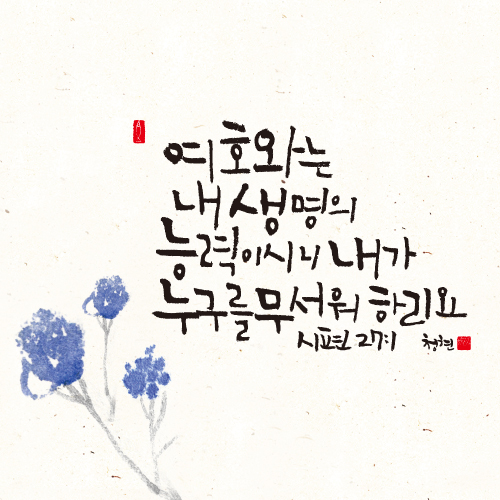 여호와는
내 생명의
능력이시니 내가
누구를 무서워 하리요
시편 27:1
청현